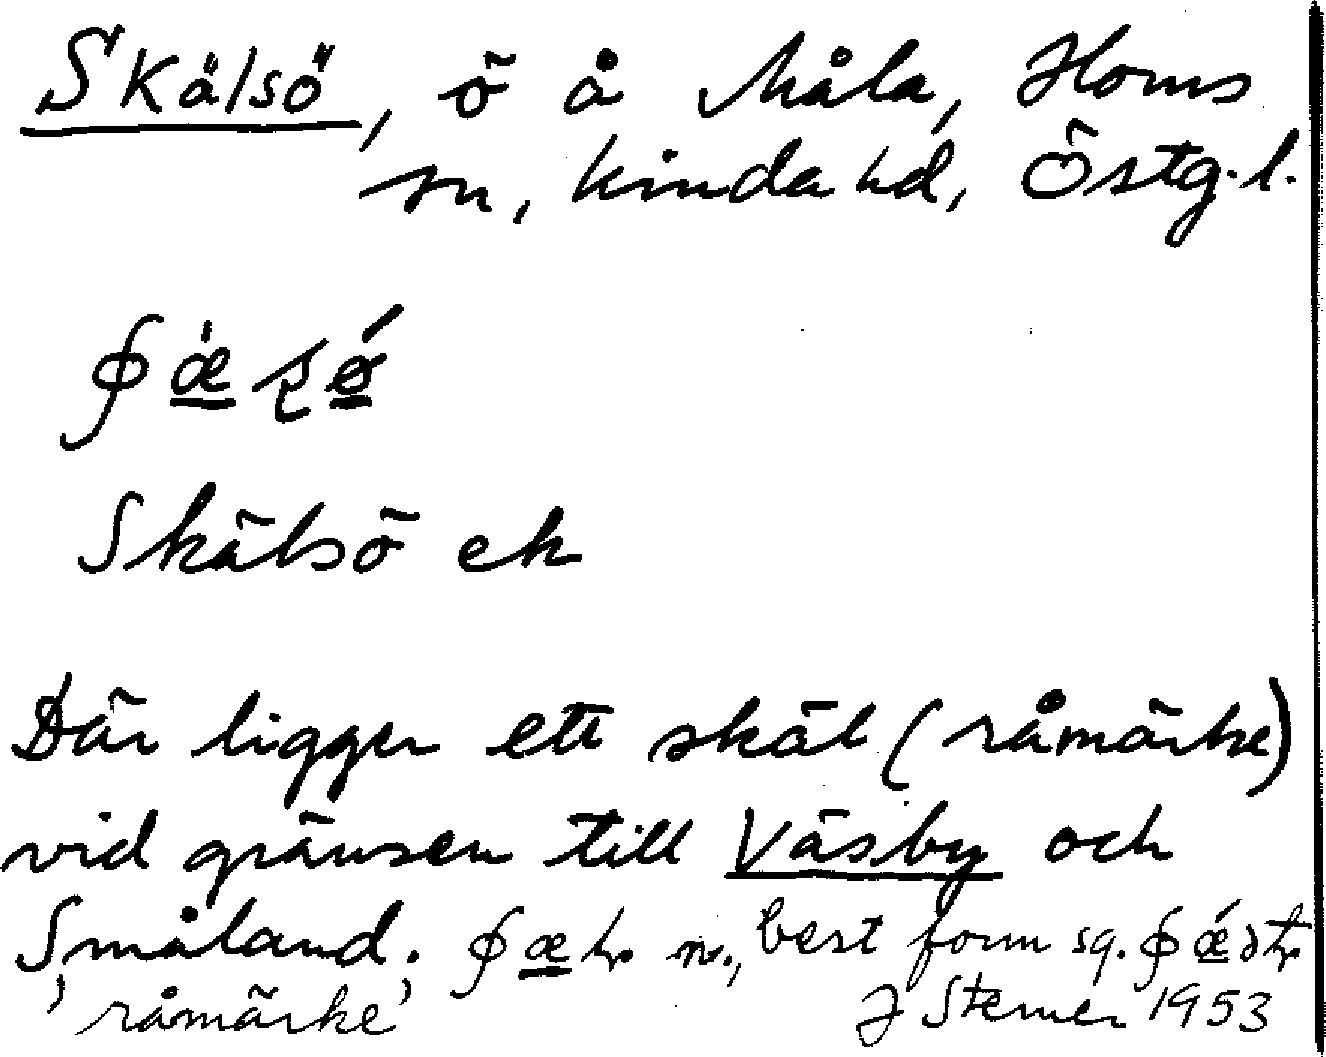 Skälsö, ö å Måla, Horns
sn, Kinda hd, Östg.l.
Skälsö ek
Där ligger ett skäl (råmärke)
vid gränsen till Väsby och
Småland. n., best form sg.
'råmärke' J Sterner 1953